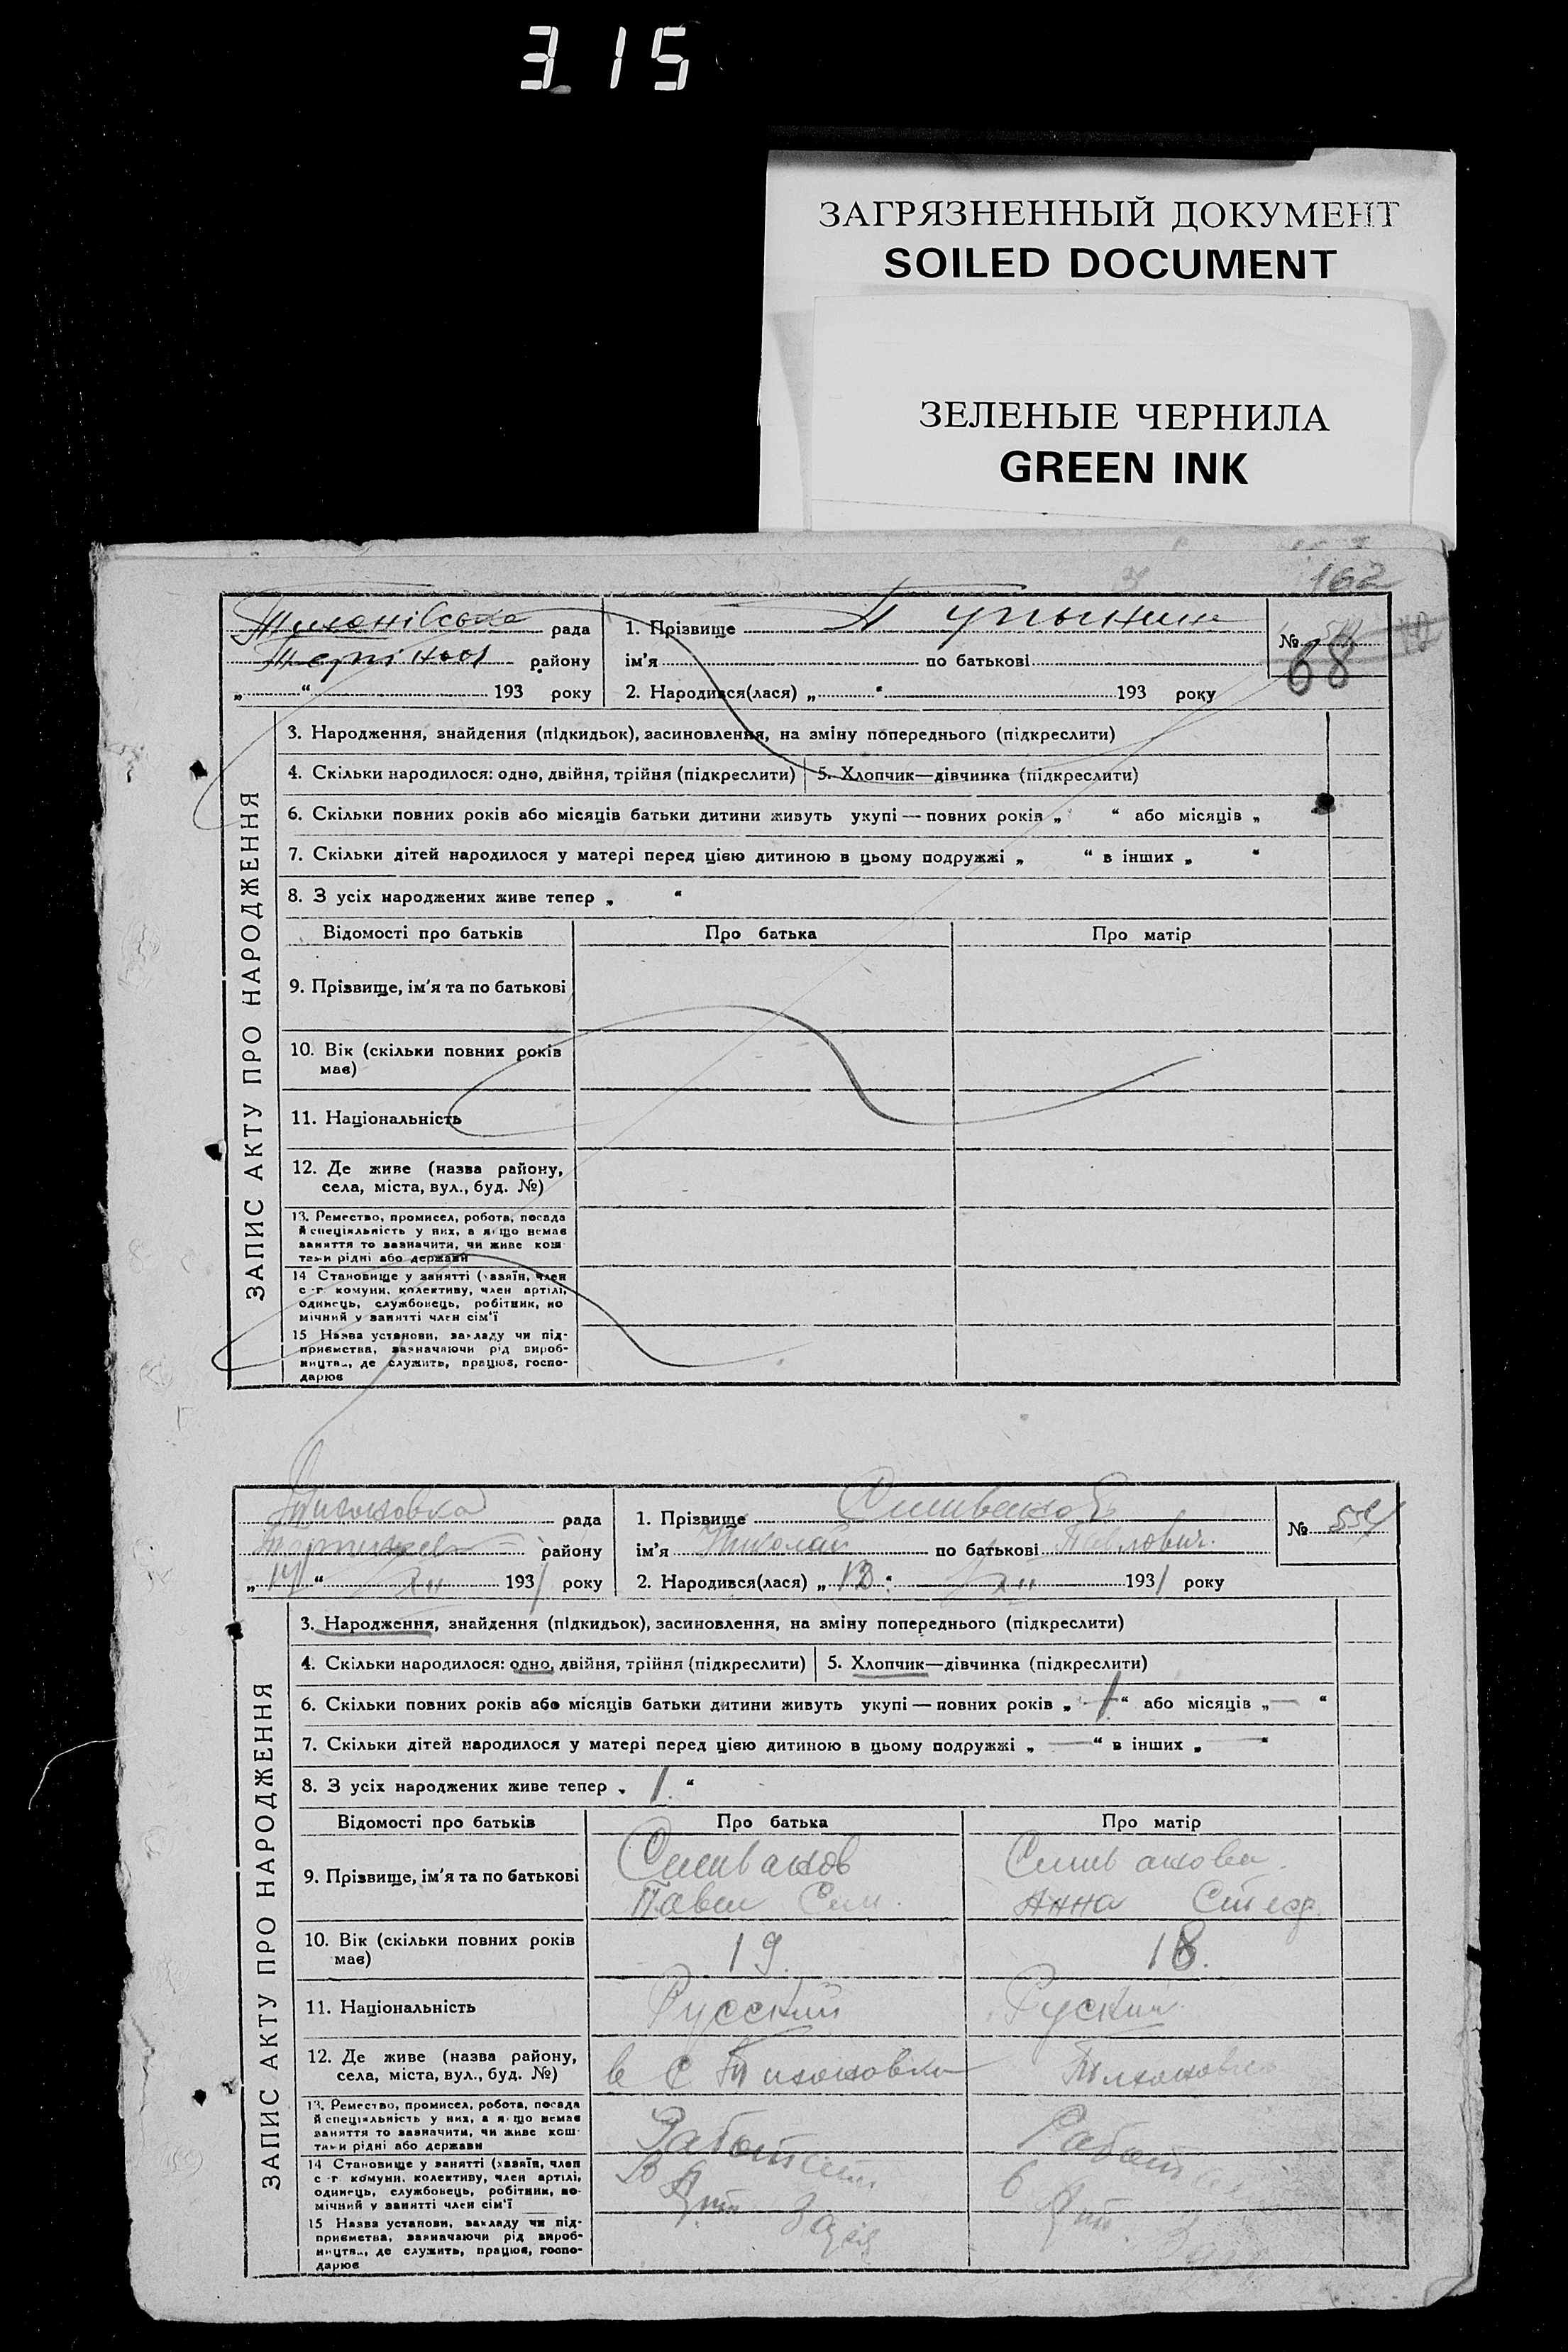 3 15
ЗАГРЯЗНЕННЫЙ ДОКУМЕНТ
SOILED DOCUMENT
ЗЕЛЕНЫЕ ЧЕРНИЛА
GREEN INK
162
рада
району
„ “ 193 року
1. Прізвище
ім'я по батькові
2. Народився(лася) „ “ 193 року
№
68
ЗАПИС АКТУ ПРО НАРОДЖЕННЯ
3. Народження, знайдення (підкидьок), засиновлення, на зміну попереднього (підкреслити)
4. Скільки народилося: одно, двійня, трійня (підкреслити) 5. Хлопчик—дівчинка (підкреслити)
6. Скільки повних років або місяців батьки дитини живуть укупі — повних років „ “ або місяців „
7. Скільки дітей народилося у матері перед цією дитиною в цьому подружжі „ “ в інших „ “
8. З усіх народжених живе тепер „ “
Відомості про батьків Про батька Про матір
9. Прізвище, ім'я та по батькові
10. Вік (скільки повних років
має)
11. Національність
12. Де живе (назва району,
села, міста, вул., буд. №)
13. Ремество, промисел, робота, посада
й спеціяльність у них, а якщо немає
заняття то зазначити, чи живе кош-
тами рідні або держави
14 Становище у занятті (хазяїн, член
с-г комуни, колективу, член артілі,
одинець, службовець, робітник, по-
мічний у занятті член сім'ї
15 Назва установи, закладу чи під-
приємства, зазначаючи рід вироб-
ництва, де служить, працює, госпо-
дарює
Тихоновка рада
району
„ 14 “ XII 1931 року
1. Прізвище
ім'я Николай по батькові Павлович.
2. Народився(лася) „ 13 “ XII 1931 року
№ 554
ЗАПИС АКТУ ПРО НАРОДЖЕННЯ
3. Народження, знайдення (підкидьок), засиновлення, на зміну попереднього (підкреслити)
4. Скільки народилося: одно, двійня, трійня (підкреслити) 5. Хлопчик—дівчинка (підкреслити)
6. Скільки повних років або місяців батьки дитини живуть укупі — повних років „ 1 “ або місяців „ — “
7. Скільки дітей народилося у матері перед цією дитиною в цьому подружжі „ — “ в інших „ — “
8. З усіх народжених живе тепер „ 1 “
Відомості про батьків Про батька Про матір
9. Прізвище, ім'я та по батькові
Анна
10. Вік (скільки повних років
має) 19. 18.
11. Національність Русский Руский
12. Де живе (назва району,
села, міста, вул., буд. №) в с Тихоновка Тихоновка
13. Ремество, промисел, робота, посада
й спеціяльність у них, а якщо немає
заняття то зазначити, чи живе кош-
тами рідні або держави
14 Становище у занятті (хазяїн, член
с-г комуни, колективу, член артілі,
одинець, службовець, робітник, по-
мічний у занятті член сім'ї
15 Назва установи, закладу чи під-
приємства, зазначаючи рід вироб-
ництва, де служить, працює, госпо-
дарює